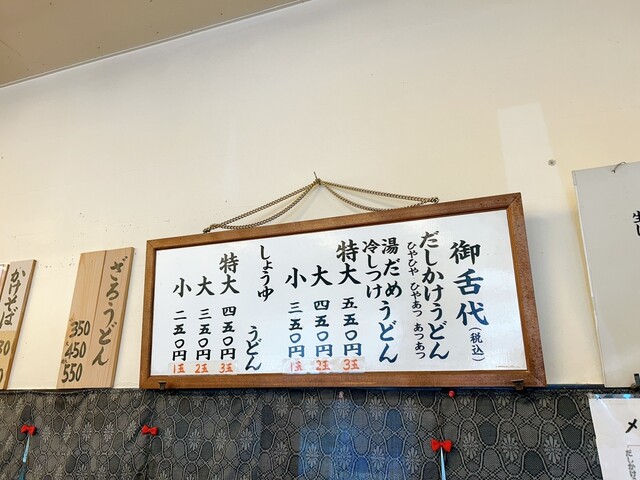 御舌代(税込)
だしかけうどん
ひやひや ひやあつ あつあつ
湯だめうどん
冷しつけ
特大 五五〇円 3玉
大 四五〇円 2玉
小 三五〇円 1玉
しょうゆ うどん
特大 四五〇円 3玉
大 三五〇円 2玉
小 二五〇円 1玉
ざるうどん
350
450
550
かけそば
メ
だしかけ